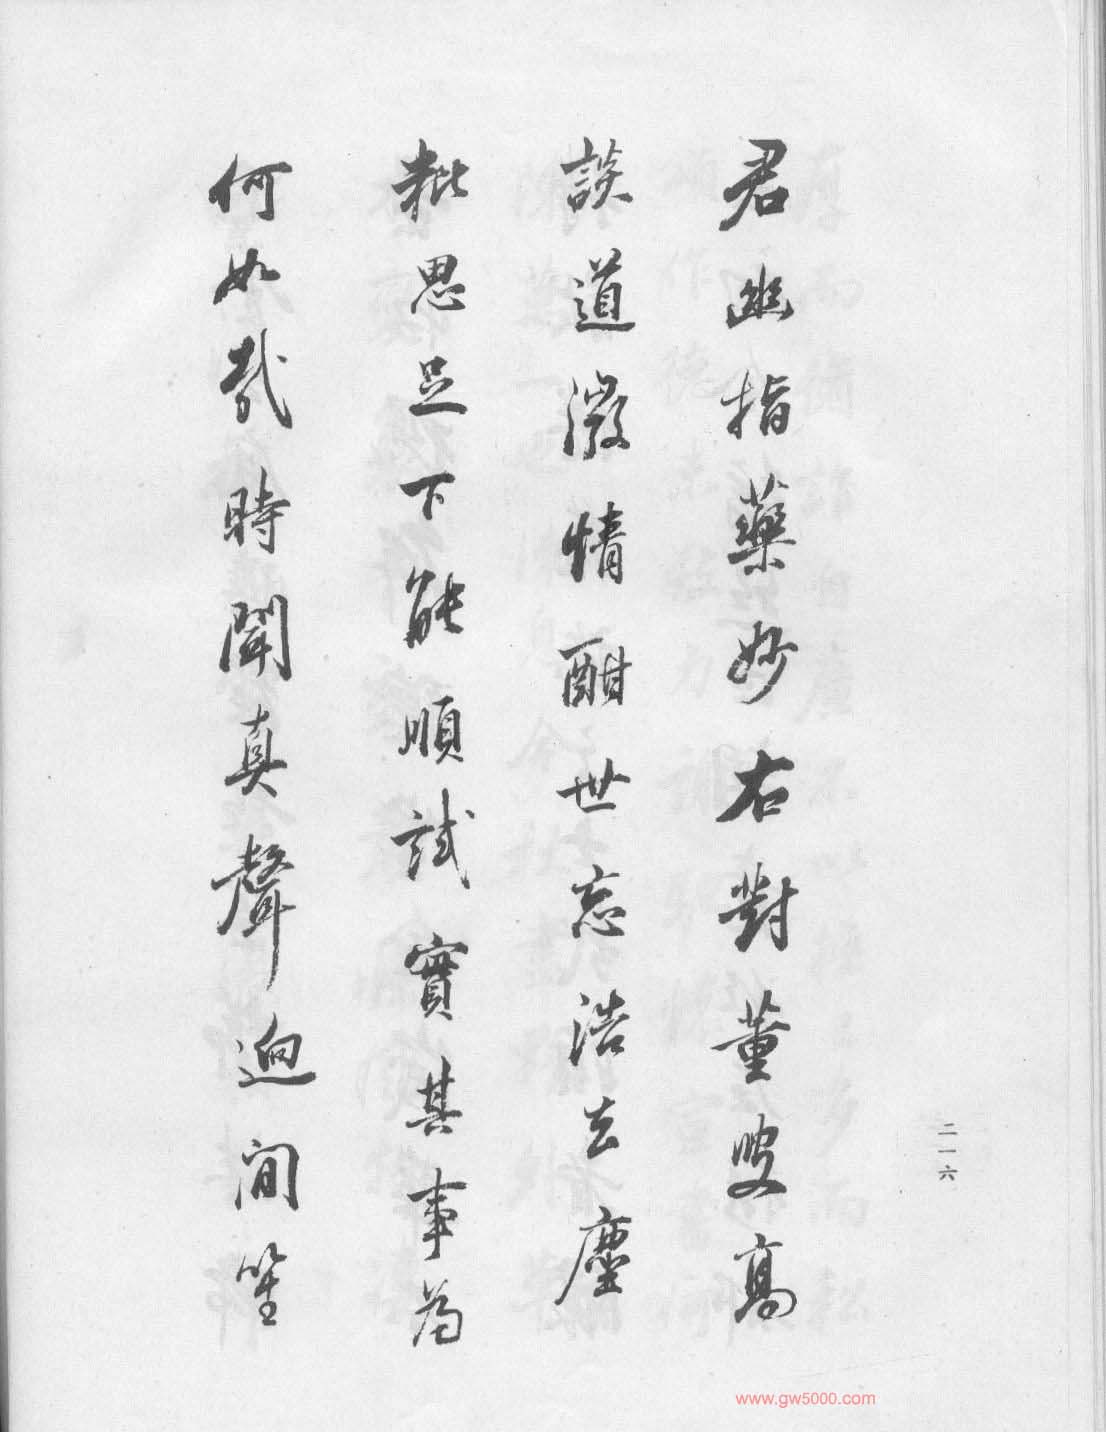 君幽指藥妙右對董叟高
談道激情酣世忘浩去塵
粃思足下能順試實其事為
何如哉時聞真聲迥間笙
二一六
www.gw5000.com